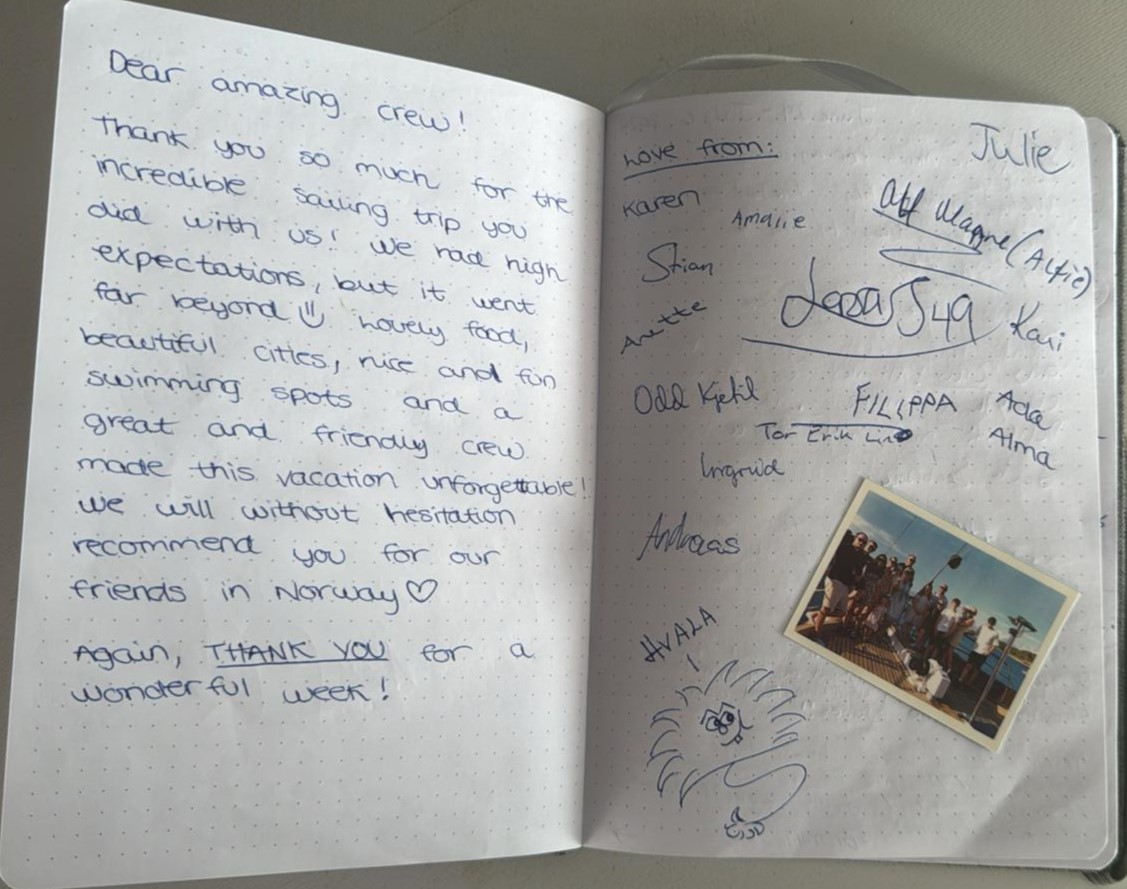 Dear amazing crew!
Thank you so much for the
incredible sailing trip you
did with us! We had high
expectations, but it went
far beyond Lovely food,
beautiful cities, nice and fun
swimming spots and a
great and friendly crew
made this vacation unforgettable!
We will without hesitation
recommend you for our
friends in Norway♡
Again, THANK YOU for a
wonderful week!
Love from:
Julie
Karen
Amalie
Alf Magne (Alfie)
Stian
Kari
Anette
Odd Kjetil
FILIPPA
Ada
Tor Erik
Alma
Ingrid
Andreas
HVALA
!